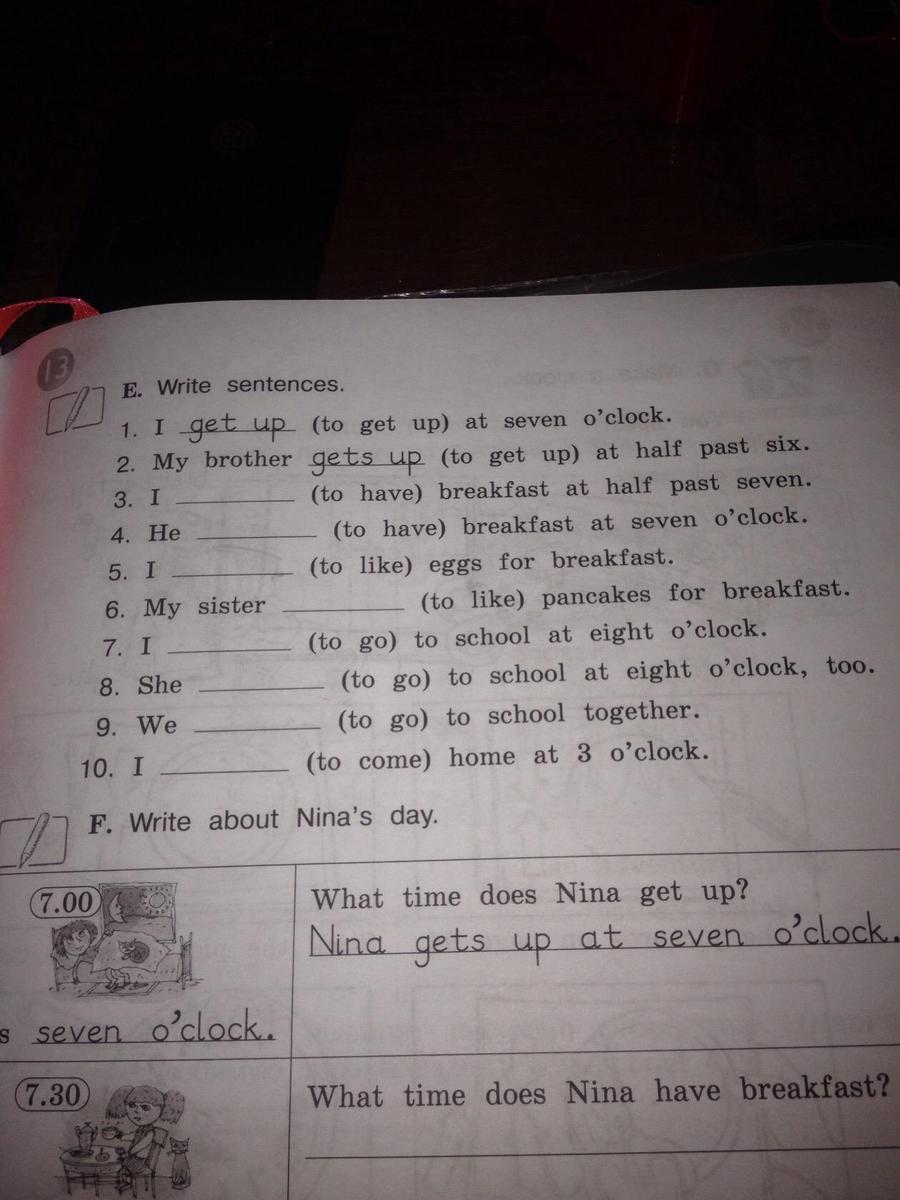 13
E. Write sentences.
1. I get up (to get up) at seven o'clock.
2. My brother gets up (to get up) at half past six.
3. I ________ (to have) breakfast at half past seven.
4. He ________ (to have) breakfast at seven o'clock.
5. I ________ (to like) eggs for breakfast.
6. My sister ________ (to like) pancakes for breakfast.
7. I ________ (to go) to school at eight o'clock.
8. She ________ (to go) to school at eight o'clock, too.
9. We ________ (to go) to school together.
10. I ________ (to come) home at 3 o'clock.
F. Write about Nina's day.
7.00
s seven o'clock.
What time does Nina get up?
Nina gets up at seven o'clock.
7.30
What time does Nina have breakfast?